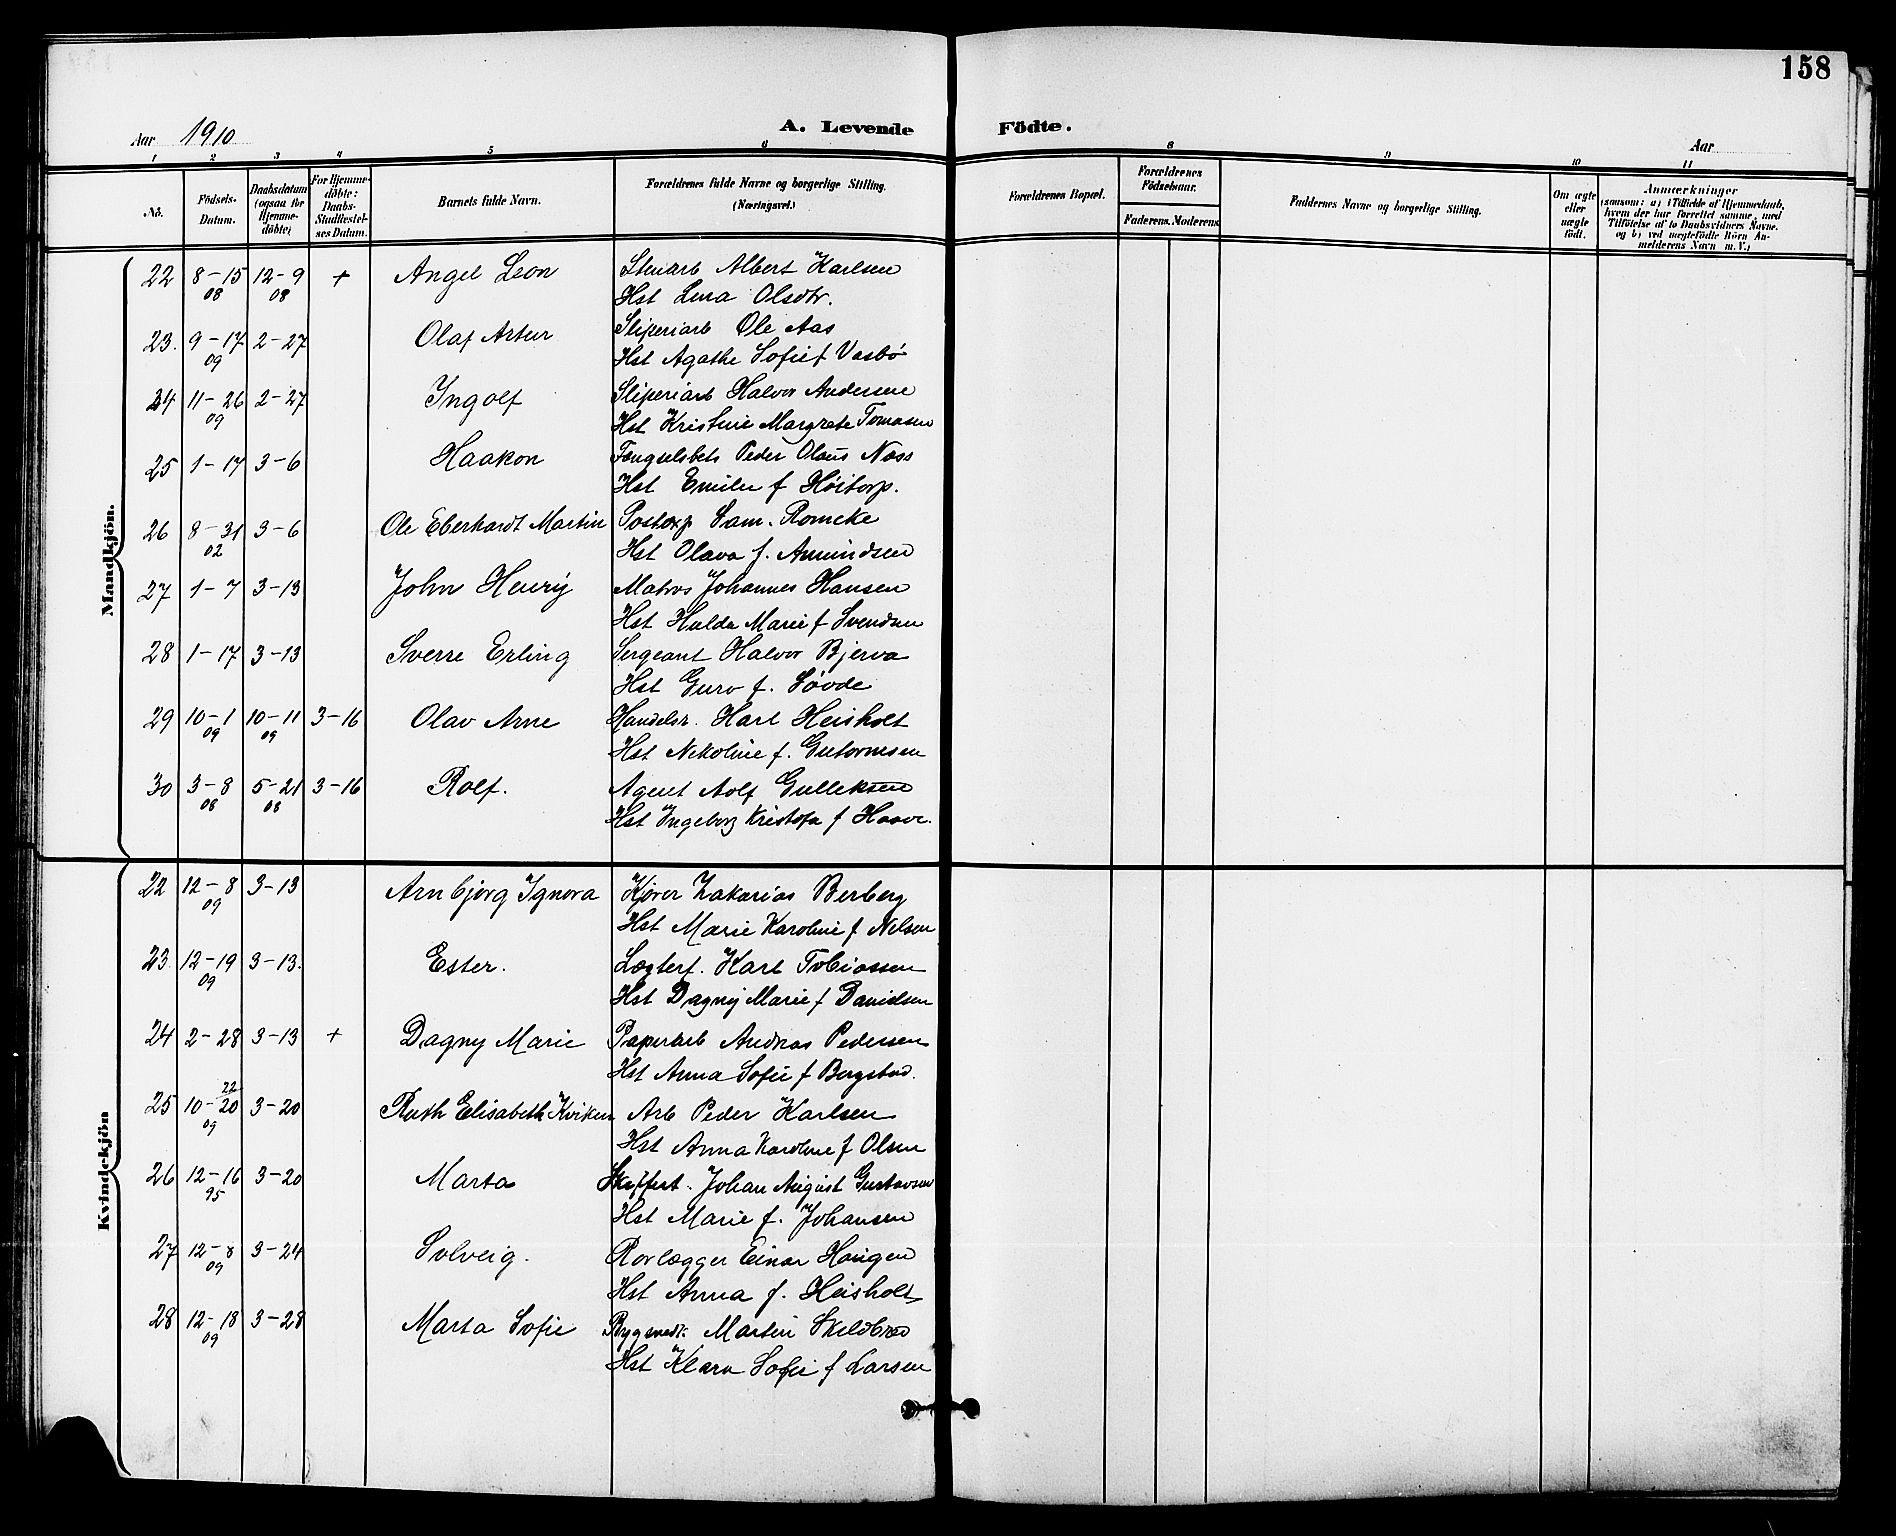 158
Aar 1910
A. Levende Födte.
Aar
1 2 3 4 5 6 8 9 10 11
No.
Födsels-Datum.
Daabsdatum (ogsaa for Hjemme-döbte)
For Hjemme-döbte: Daabs-Stadfæstel-ses Datum.
Barnets fulde Navn.
Forældrenes fulde Navne og borgerlige Stilling. (Næringsvei.)
Forældrenes Bopæl.
Forældrenes Födselsaar.
Faderens. Moderens.
Faddernes Navne og borgerlige Stilling.
Om ægte eller uægte födt.
Anmærkninger (saasom: a) i Tilfælde af Hjemmedaab, hvem der har forrettet samme, med Tilföielse af to Daabsvidners Navne. og b) ved uægtefödte Börn An-melderens Navn m. V.)
Mandkjön.
22 8-15 08 12-9 08 + Angel Leon Stenarb Albert Karlsen
Hst Lena Olsdtr.
23. 9-17 09 2-27 Olaf Artur Sliperiarb Ole Aas
Hst Agathe Sofie f Vasbö
24 11-26 09 2-27 Ingolf Sliperiarb Halvor Andersen
Hst Kristine Margrete Tomasen
25 1-17 3-6 Haakon Fængselsbets Peder Olaus Næss
Hst Emilie f Höitorp.
26 8-31 02 3-6 Ole Eberhardt Martin Postexp Sam. Romcke
Hst Olava f. Amundsen
27 1-7 3-13 John Henry Matros Johannes Hansen
Hst Hulda Marie f Svendsen
28 1-17 3-13 Sverre Erling Sergeant Halvor Bjerva
Hst Guro f. Søvde
29 10-1 09 10-11 09 3-16 Olav Arne Handelsr. Karl Heisholt
Hst Nekoline f. Gutormsen
30 3-8 08 5-21 08 3-16 Rolf. Agent Adolf Gulleksen
Hst Ingeborg Kristofa f Haave.
Kvindekjön
22 12-8 09 3-13 Arnbjörg Ignora Kjörer Zakarias Berberg
Hst Marie Karoline f Nelsen
23. 12-19 09 3-13. Ester. Lægterf. Karl Tobiassen
Hst Dagny Marie f Danielsen
24 2-28 3-13 + Dagny Marie Paperarb Andreas Pedersen
Hst Anna Sofie f Bergstad.
25 10-20 22 09 3-20 Ruth Elisabeth Kviken Arb Peder Karlsen
Hst Anna Karoline f Olsen
26 12-16 95 3-20 Marta Skiffert. Johan August Gustavsen
Hst Marie f. Johansen
27 12-8 09 3-24 Solveig. Rorlægger Einar Haugen
Hst Anna f. Heisholt
28 12-18 09 3-28 Marta Sofie Bygmedk. Martin Skildbred
Hst Klara Sofie f Larsen